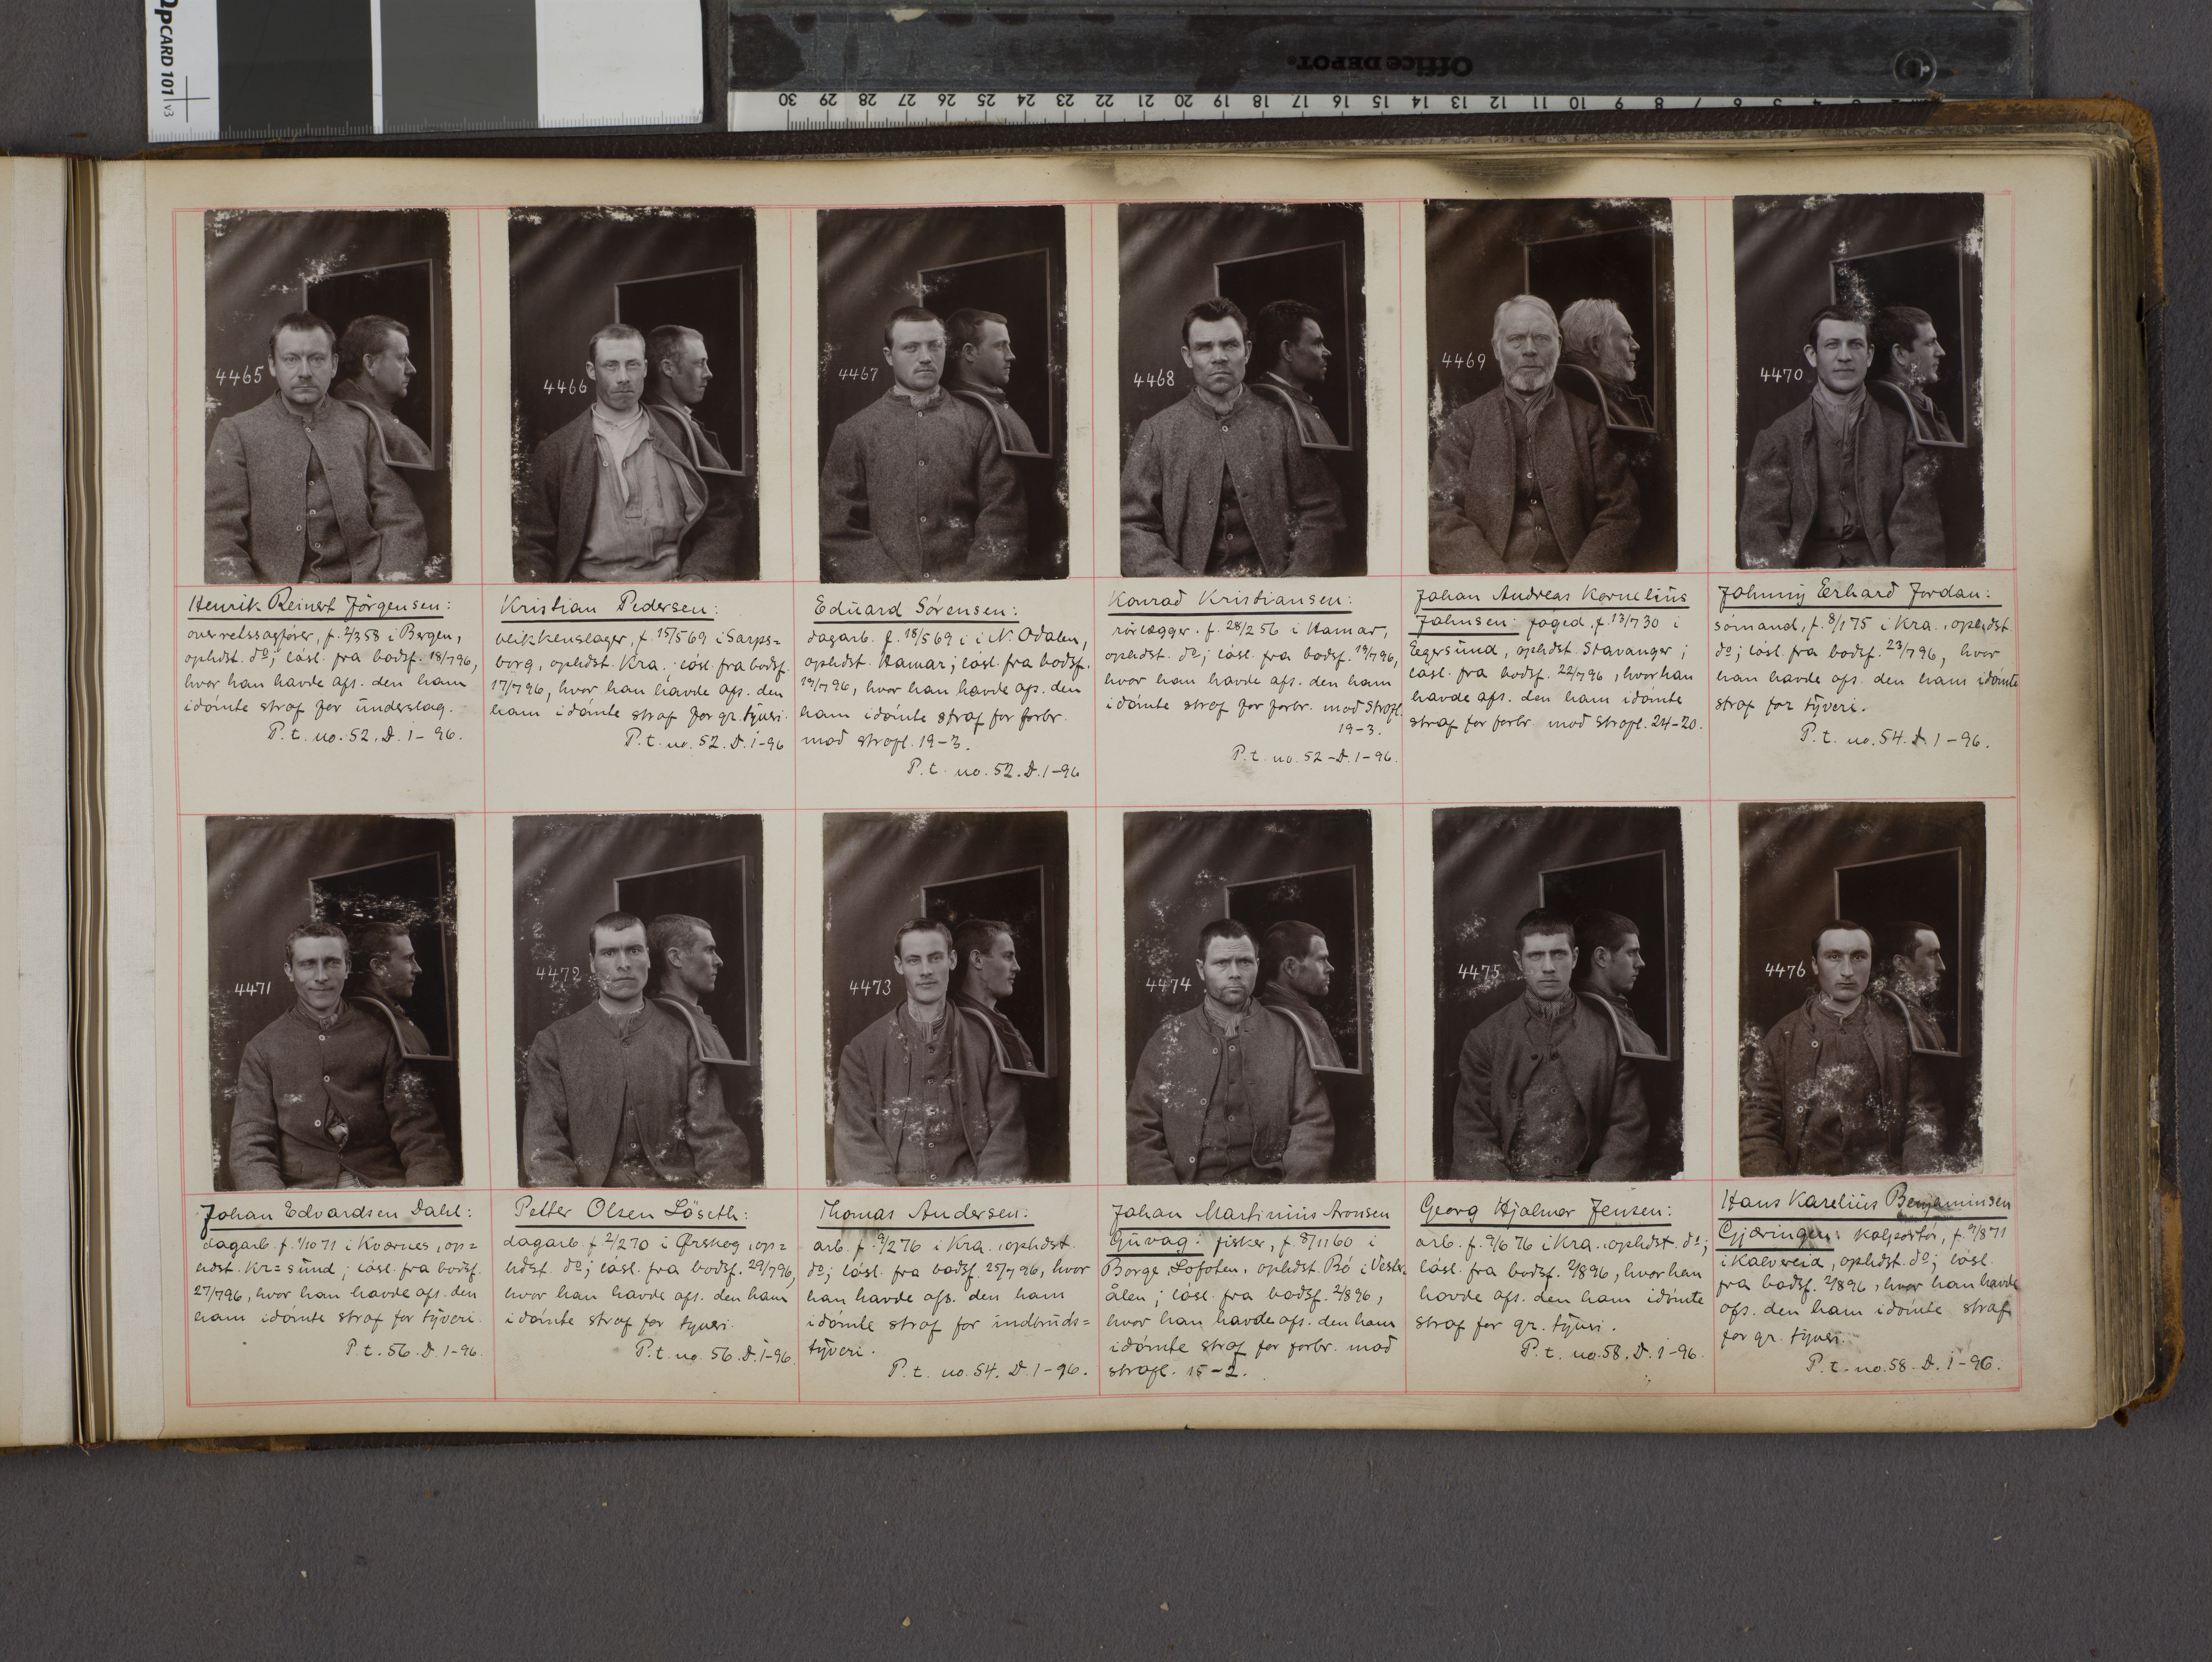 OpCARD 101 v3
Office DEPOT
30 29 28 27 26 25 24 23 22 21 20 19 18 17 16 15 14 13 12 11 10 9 8 7 6 5 4 3 2
4465
4466
4467
4468
4469
4470
Henrik Reinert Jörgensen:
overretssagförer, f. 2/3 58 i Bergen,
ophdst. do; lösl. fra bodsf. 18/7 96,
hvor han havde afs. den ham
idömte straf for underslag.
P. t. no. 52. D. 1-96.
Kristian Pedersen:
blikkenslager, f. 15/5 69 i Sarps=
borg, ophdst. Kra. lösl. fra bodsf.
17/7 96, hvor han havde afs. den
ham idömte straf for gr. tyveri.
P. t. no. 52. D. 1-96
Eduard Sörensen:
dagarb. f. 18/5 69 i i N. Odalen,
ophdst. Hamar; lösl. fra bodsf.
19/7 96, hvor han havde afs. den
ham idömte straf for forbr.
mod strafl. 19-3.
P. t. no. 52. D. 1-96
Konrad Kristiansen:
rörlægger. f. 28/2 56 i Hamar,
ophdst. do; lösl. fra bodsf. 19/7 96,
hvor han havde afs. den ham
idömte straf for forbr. mod strafl.
19-3.
P. t. no. 52-D. 1-96.
Johan Andreas Kornelius
Johnsen: foged, f. 13/7 30 i
Egersund, ophdst. Stavanger;
lösl. fra bodsf. 22/7 96, hvor han
havde afs. den ham idömte
straf for forbr. mod strafl. 24-20.
Johnny Erhard Jordan:
sömand, f. 8/1 75 i Kra., ophdst.
do; lösl. fra bodsf. 23/7 96, hvor
han havde afs. den ham idömte
straf for tyveri.
P. t. no. 54. D. 1-96.
4471
4472
4473
4474
4475
4476
Johan Edvardsen Dahl:
dagarb. f. 1/10 71 i Kværnes, op=
hdst. Kr=sund; lösl. fra bodsf.
27/7 96, hvor han havde afs. den
ham idömte straf for tyveri.
P. t. 56. D. 1-96.
Petter Olsen Löseth:
dagarb. f. 2/2 70 i Ørskog, op=
hdst. do; lösl. fra bodsf. 29/7 96,
hvor han havde afs. den ham
idömte straf for tyveri.
P. t. no. 56. D. 1-96.
Thomas Andersen:
arb. f. 9/2 76 i Kra., ophdst.
do; lösl. fra bodsf. 25/7 96, hvor
han havde afs. den ham
idömte straf for indbruds=
tyveri.
P. t. no. 54. D. 1-96.
Johan Martinius Aronsen
Guvag: fisker, f. 8/11 60 i
Borge, Lofoten, ophdst. Bö i Vester=
ålen; lösl. fra bodsf. 2/8 96,
hvor han havde afs. den ham
idömte straf for forbr. mod
strafl. 15-2.
Georg Hjalmar Jensen:
arb. f. 9/6 76 i Kra., ophdst. do;
lösl. fra bodsf. 2/8 96, hvor han
havde afs. den ham idömte
straf for gr. tyveri.
P. t. no. 58. D. 1-96.
Hans Karelius Benjaminsen
Gjæringen: kolportör, f. 9/8 71
i Kalvereid, ophdst. do; lösl.
fra bodsf. 2/8 96, hvor han havde
afs. den ham idömte straf
for gr. tyveri.
P. t. no. 58. D. 1-96.